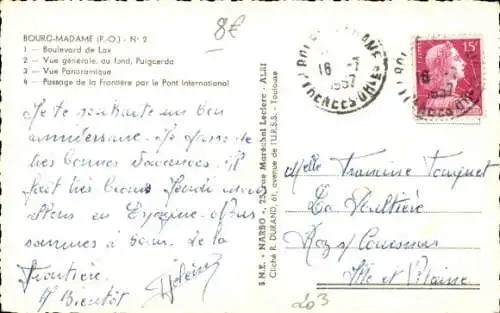 BOURG-MADAME (P.-O.) - N° 2
1 — Boulevard de Lax
2 — Vue générale, au fond, Puigcerda
3 — Vue Panoramique
4 — Passage de la Frontière par le Pont International
8€
Je te souhaite un bon
anniversaire. Je passe de
très bonnes vacances. Il
fait très beau. Jeudi nous
allons en Espagne. Nous
sommes à 500 m. de la
frontière.
A Bientôt
S.N.E. « NARBO », 23, rue Maréchal Leclerc - ALBI
Cliché R. DURAND, 61, avenue de l'U.R.S.S. - Toulouse
BOURG-MADAME
16
1957
PYRENEES-ORles
15F
Melle Francine Touquet
La
Roz s/ Couesnon
Ille et Vilaine
203